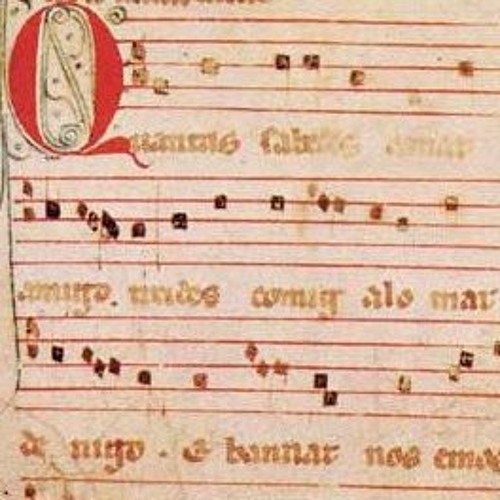 Quantas sabedes amar
amigo. treides comig alo mar
de uigo . E bannar nos emo